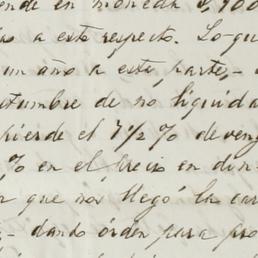 ende en moneda 6,900
as a este respecto. Lo que
un año a esta parte, -
stumbre de no liquida
pierde el 7 1/2 % de ven
% en el precio en din
que nos llegó la car
- dando órden para pro